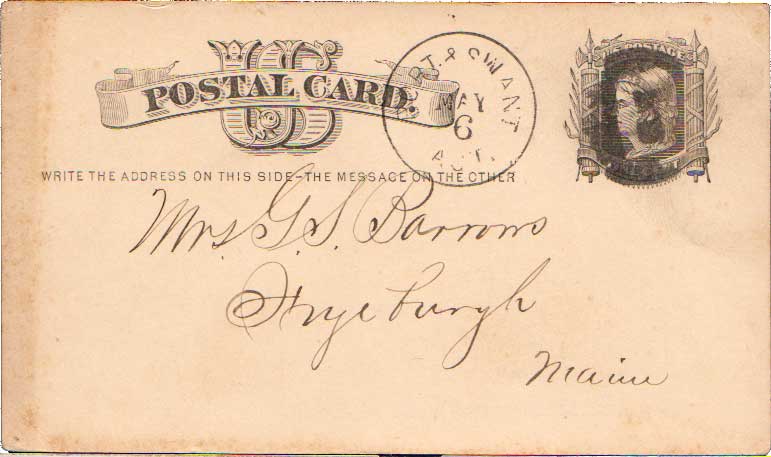 US
POSTAL CARD.
PT. & SWANT.
MAY
6
AGT.
WRITE THE ADDRESS ON THIS SIDE-THE MESSAGE ON THE OTHER
Mrs G. S. Barrows
Fryeburgh
Maine